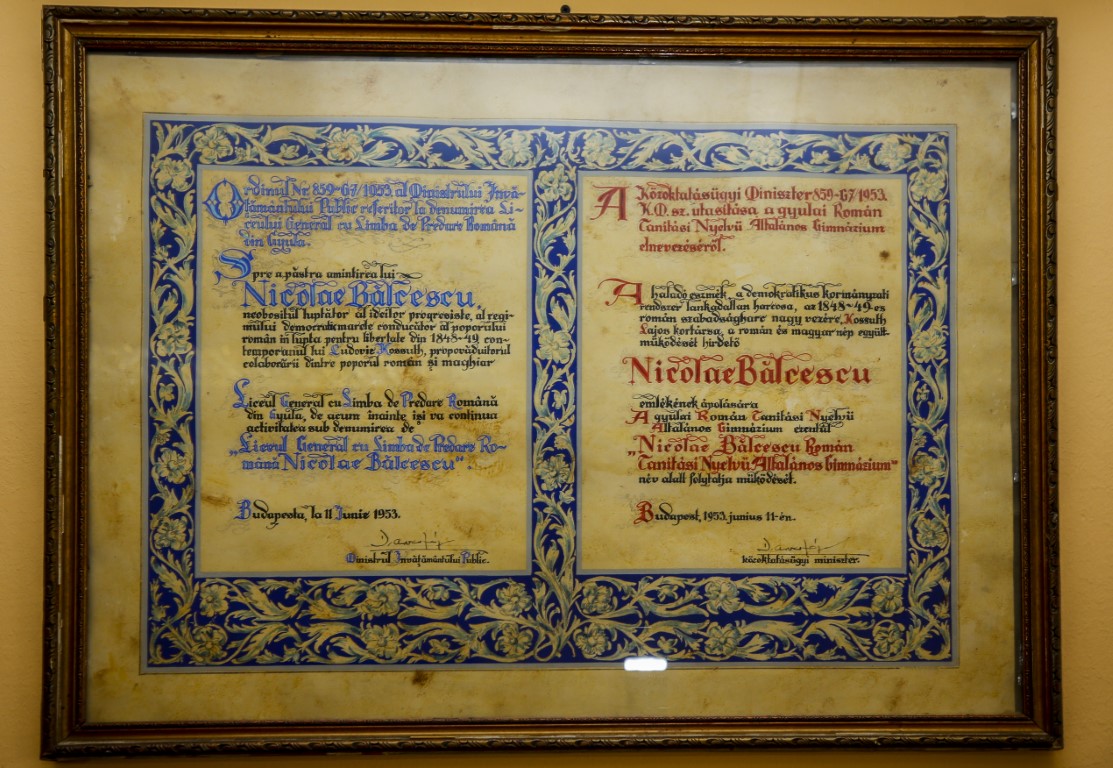 Ordinul Nr. 859-G7/1953 al Ministrului Învă-
țământului Public referitor la denumirea Li-
ceului General cu Limba de Predare Română
din Gyula.
Spre a păstra amintirea lui
Nicolae Bălcescu,
neobositul luptător al ideilor progresiste, al regi-
mului democratic marele conducător al poporului
român în lupta pentru libertate din 1848-49, con-
temporanul lui Ludovic Kossuth, propovăduitorul
colaborării dintre poporul român și maghiar
Liceul General cu Limba de Predare Română
din Gyula, de acum înainte își va continua
activitatea sub denumirea de
„Liceul General cu Limba de Predare Ro-
mână Nicolae Bălcescu".
Budapesta, la 11 Iunie 1953.
Ministrul Învățământului Public.
A Közoktatásügyi Miniszter 859-G7/1953.
K.M. sz. utasítása a gyulai Román
Tanítási Nyelvü Általános Gimnázium
elnevezéséről.
A haladó eszmék, a demokratikus kormányzati
rendszer lankadatlan harcosa, az 1848-49-es
román szabadságharc nagy vezére, Kossuth
Lajos kortársa, a román és magyar nép együtt-
működését hirdető
Nicolae Bălcescu
emlékének ápolására
A gyulai Román Tanítási Nyelvü
Általános Gimnázium ezentúl
„Nicolae Bălcescu Román
Tanítási Nyelvü Általános Gimnázium"
név alatt folytatja működését.
Budapest, 1953. junius 11-én.
közoktatásügyi miniszter.